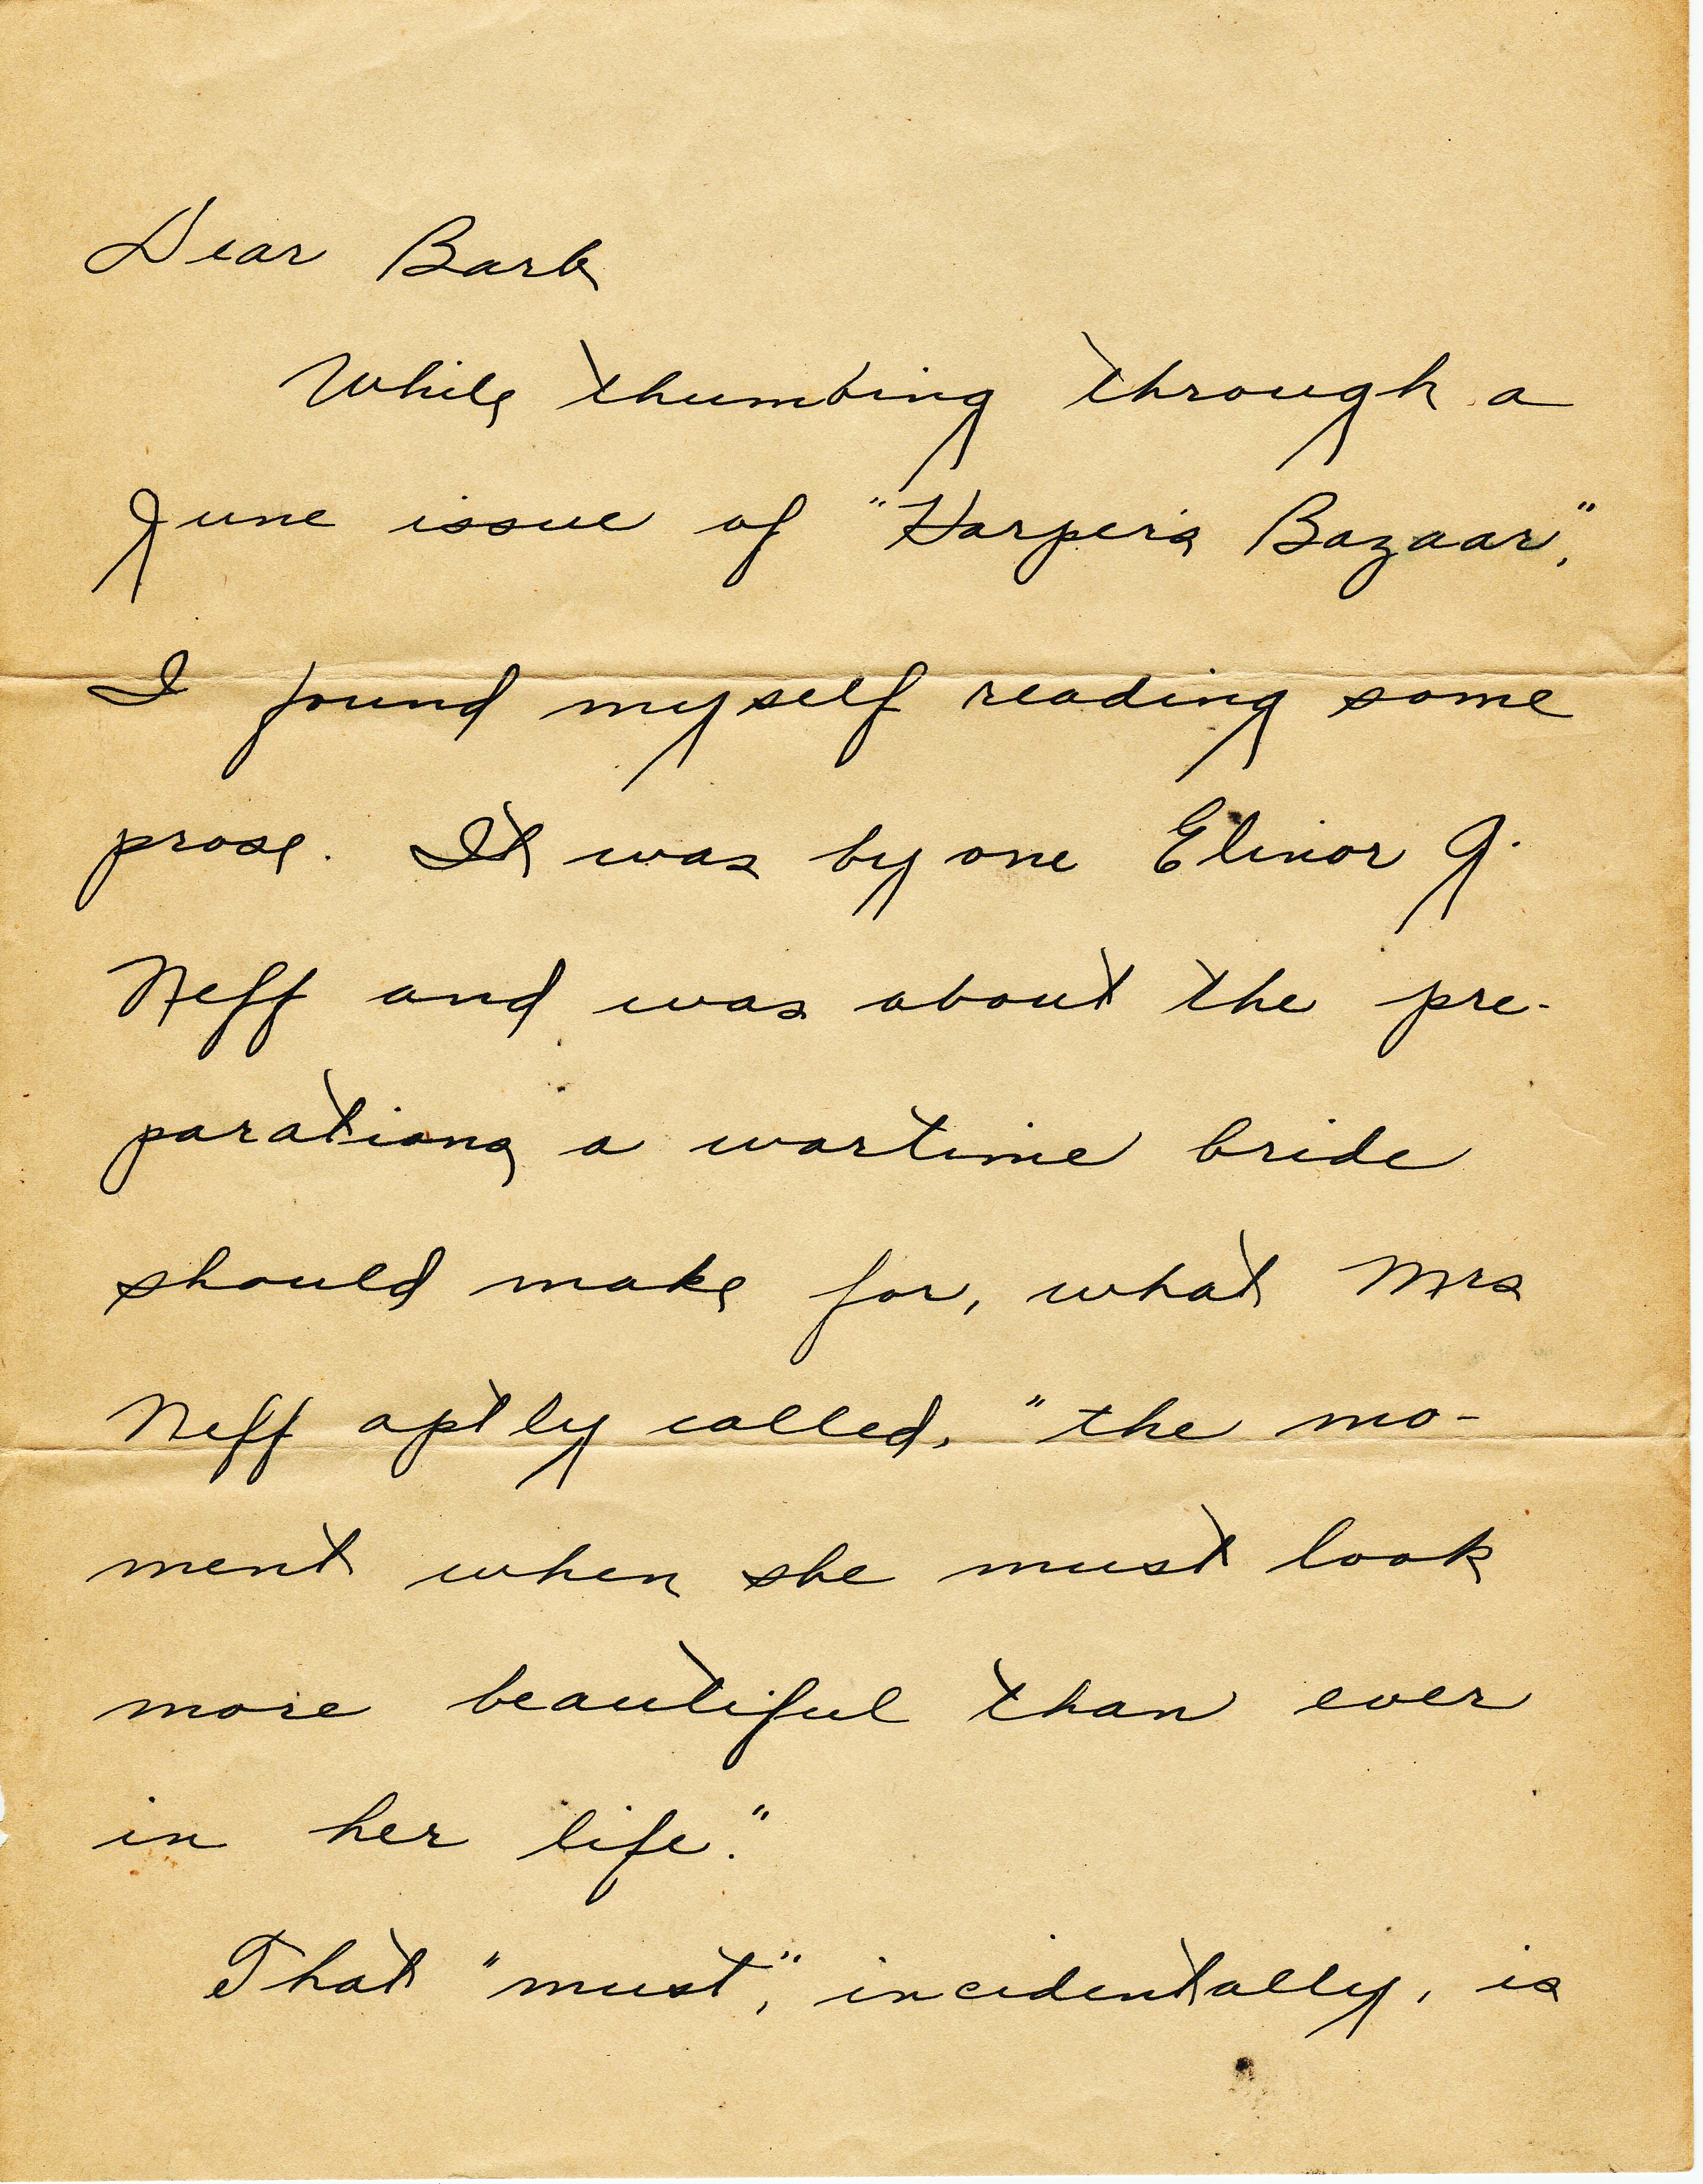 Dear Barb
While thumbing through a
June issue of "Harper's Bazaar,"
I found myself reading some
prose. It was by one Elinor J.
Neff and was about the pre-
parations a wartime bride
should make for, what Mrs
Neff aptly called, "the mo-
ment when she must look
more beautiful than ever
in her life."
That "must," incidentally, is